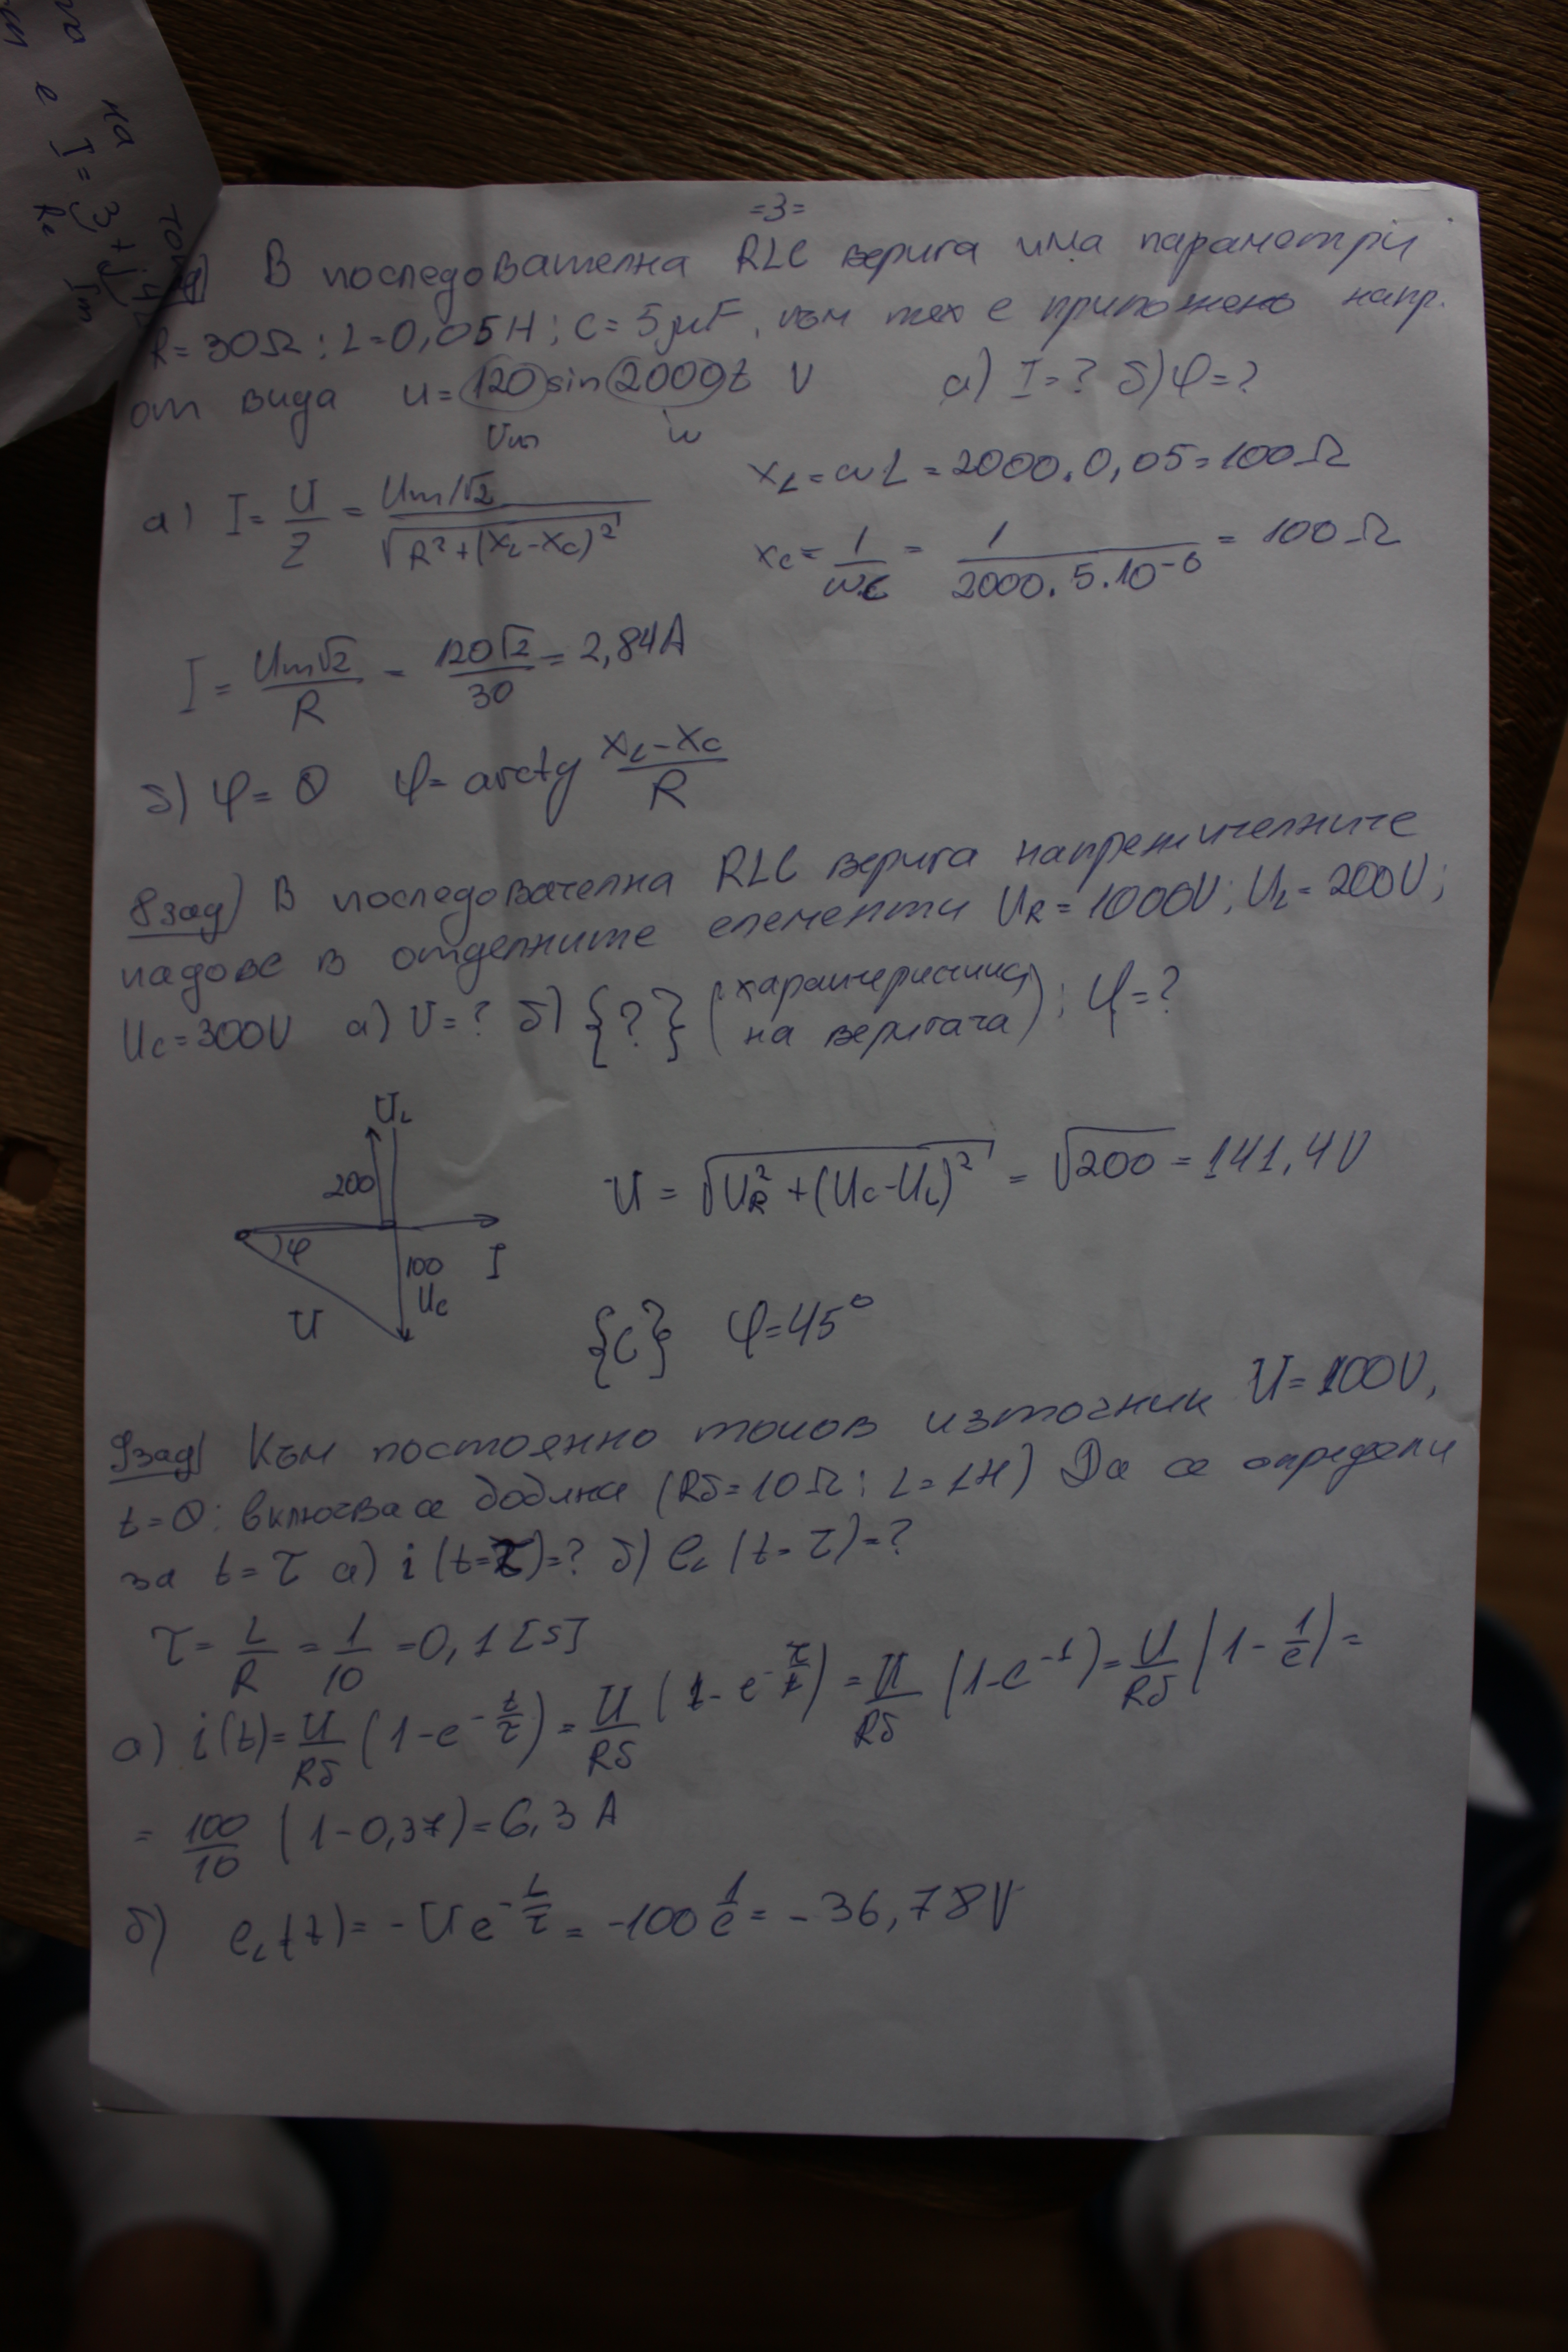 на
е I = 3 + j4
Re Im
=3=
В последователна RLC верига има параметри
R=30Ω; L=0,05H; C=5μF, към тях е приложено напр.
от вида u=120sin2000t V а) I=? б) φ=?
Um ω
а) I = U/Z = (Um/√2)/√(R²+(XL-XC)²)
XL=ωL=2000.0,05=100Ω
XC = 1/ωC = 1/(2000.5.10⁻⁶) = 100Ω
I = Um√2/R = 120√2/30 = 2,84A
б) φ=0 φ=arctg (XL-XC)/R
8зад) В последователна RLC верига напрежителните
падове в отделните елементи UR=1000V; UL=200V;
UC=300V а) U=? б) {?} (характеристика на веригата); φ=?
UL
200
φ
100
I
UC
U
U = √(UR²+(UC-UL)²) = √200 = 141,4V
{C} φ=45°
9зад) Към постоянно токов източник U=100V,
t=0; включва се бобина (Rб=10Ω; L=1H) Да се определи
за t=τ а) i(t=τ)=? б) eL(t=τ)=?
τ = L/R = 1/10 = 0,1[s]
а) i(t) = U/Rб (1-e^-t/τ) = U/Rб (1-e^-τ/τ) = U/Rб (1-e⁻¹) = U/Rб (1-1/e) =
= 100/10 (1-0,37) = 6,3A
б) eL(t) = -Ue^-t/τ = -100 1/e = -36,78V